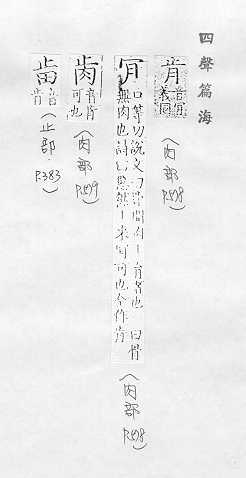 四聲篇海
肯 音同義同 (肉部 P.408)
肎 口等切說文曰骨間肉 肎肎著也 一曰骨無肉也詩曰惠然 來肎可也今作肯 (肉部 P.408)
音肯可也 (肉部 P.409)
音肯 (止部 P.383)